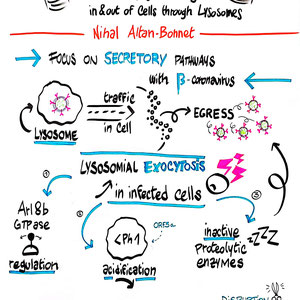 in & out of Cells through Lysosomes
Nihal Altan-Bonnet
FOCUS ON SECRETORY PATHWAYS
with β-coronavirus
traffic
in cell
EGRESS
LYSOSOME
LYSOSOMIAL EXOCYTOSIS
in infected cells
①
Arl8b
GTPase
regulation
②
<Ph↑
ORF3a
acidification
③
inactive
Proteolytic
enzymes
ZZZ
DISRUPTION